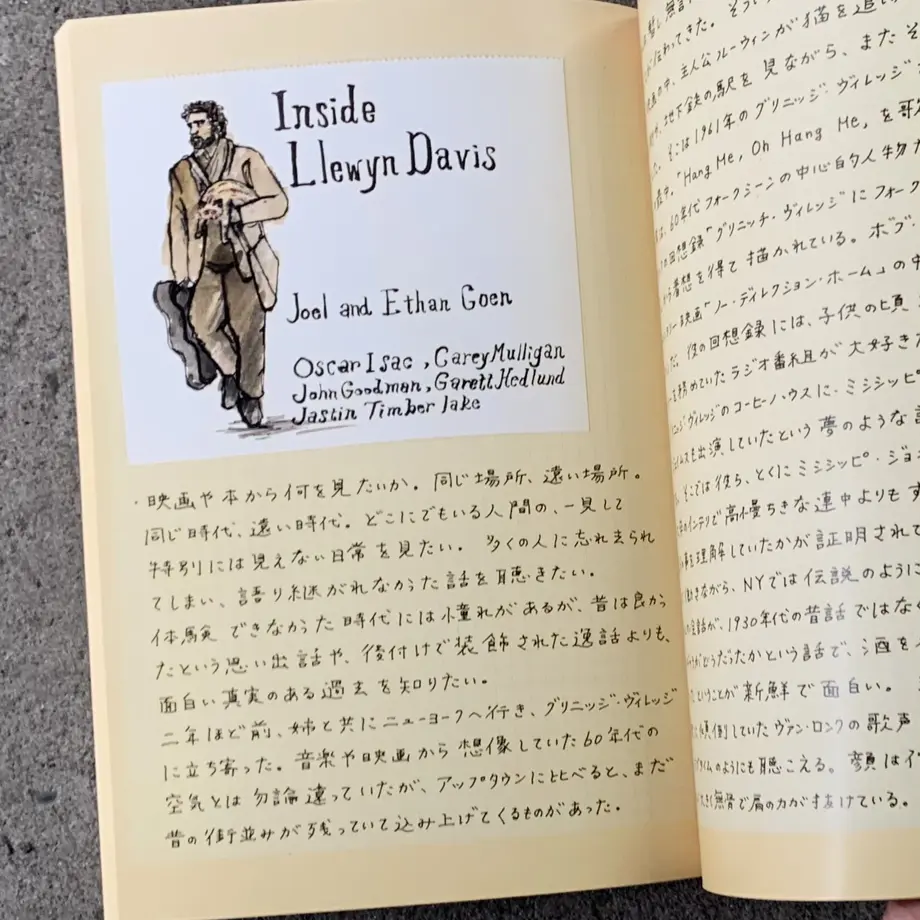 Inside
Llewyn Davis
Joel and Ethan Goen
Oscar Isac , Carey Mulligan
John Goodman, Garett Hedlund
Jastin Timber lake
・映画や本から何を見たいか。同じ場所、遠い場所。
同じ時代、遠い時代。どこにでもいる人間の、一見して
特別には見えない日常を見たい。多くの人に忘れ去られ
てしまい、語り継がれなかった話を聴きたい。
体験できなかった時代には憧れがあるが、昔は良かっ
たという思い出話や、後付けで装飾された逸話よりも、
面白い真実のある過去を知りたい。
二年ほど前、姉と共にニューヨークへ行き、グリニッジ・ヴィレッジ
に立ち寄った。音楽や映画から想像していた60年代の
空気とは勿論違っていたが、アップタウンに比べると、まだ
昔の街並みが残っていて込み上げてくるものがあった。
無言
伝わってきた。そうい
の中、主人公ルーウィンが猫を追い
地下鉄の駅を見ながら、またそ
そこは1961年のグリニッジ・ヴィレッジ
最中、"Hang Me, Oh Hang Me, を歌
は、60年代フォークシーンの中心的人物
回想録"グリニッチ・ヴィレッジにフォーク
着想を得て描かれている。ボブ・
映画「ノー・ディレクション・ホーム」の中
彼の回想録には、子供の頃
を務めていたラジオ番組が大好き
ヴィレッジのコーヒーハウスに、ミシシッピ
も出演していたという夢のような
そこでは彼ら、とくにミシシッピ・ジョ
インテリで高慢ちきな連中よりもず
理解していたかが証明されて
きながら、NYでは伝説のように
話が、1930年代の昔話ではな
がどうだったかという話で、酒を
ということが新鮮で面白い。
傾倒していたヴァン・ロンクの歌声
タイムのようにも聴こえる。顔は
無骨で肩の力が抜けている。